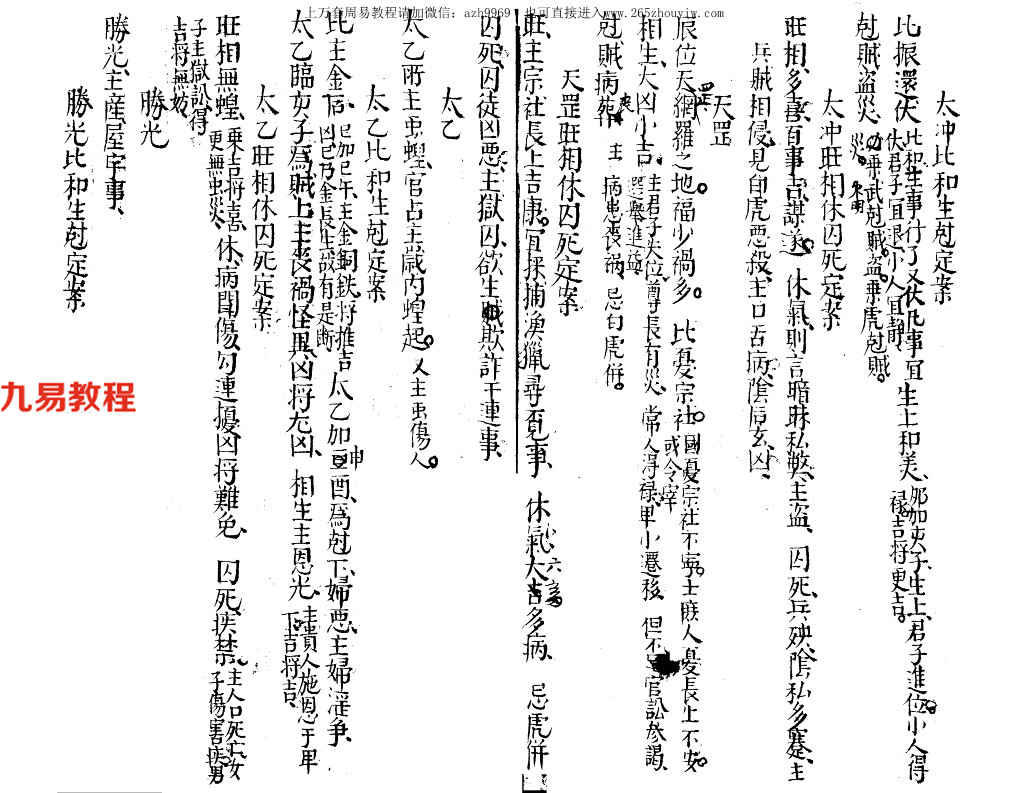 上万套周易教程请加微信:azh9969 也可直接进入www.265zhouyiw.com
太冲比和生尅定案
比振還伏比和生事行了又伏凡事宜
伏君子宜退小人宜靜
生上和美那加夾子生上君子進位小人得
祿吉將更吉
尅賊盜災
乘武尅賊盜乘虎尅賊
災
太冲旺相休囚死定案
旺相多喜百事吉謀遂休氣則言暗昧私弊主盜囚死兵殃陰私多蹇主
兵賊相侵見白虎惡殺主口舌病陰后玄凶
天罡
辰位天網羅之地福少禍多比憂宗社國憂宗社不寧士庶人憂長上不安
或令宰
相生大凶小吉主君子失位尊長有災常人得祿卑小遷移但不官訟參謁
選舉進益
尅賊病葬喪主病患喪禍忌白虎併
天罡旺相休囚死定案
旺主宗社長上吉康宜採捕漁獵尋覓事休氣大吉多病忌虎併
囚死囚徒凶惡主獄囚欲生欺詐干連事
太乙
太乙所主虫蝗官占主歲內蝗起又主虫傷人
太乙比和生尅定案
比主金后巳加巳午主金銅鉄將推吉
凶巳乃金長生故有是断
太乙加申酉爲尅下婦惡主婦淫爭
太乙臨亥子爲賊上主喪禍怪異凶將尤凶相生主恩光主貴人施恩于卑
下吉將吉
太乙旺相休囚死定案
旺相無蝗乘吉將喜
更無虫災
休病閧傷勾連擾凶將難免囚死疾禁主人口死亡女
子傷害疾男
子主獄訟得
吉將無妨
勝光
勝光主産屋宇事
勝光比和生尅定案
九易教程